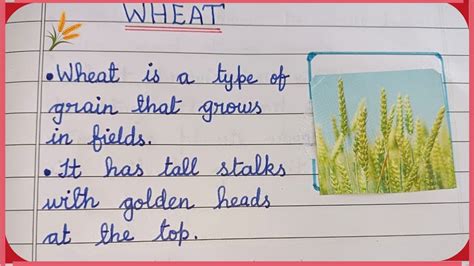 WHEAT
•Wheat is a type of
grain that grows
in fields.
•It has tall stalks
with golden heads
at the top.